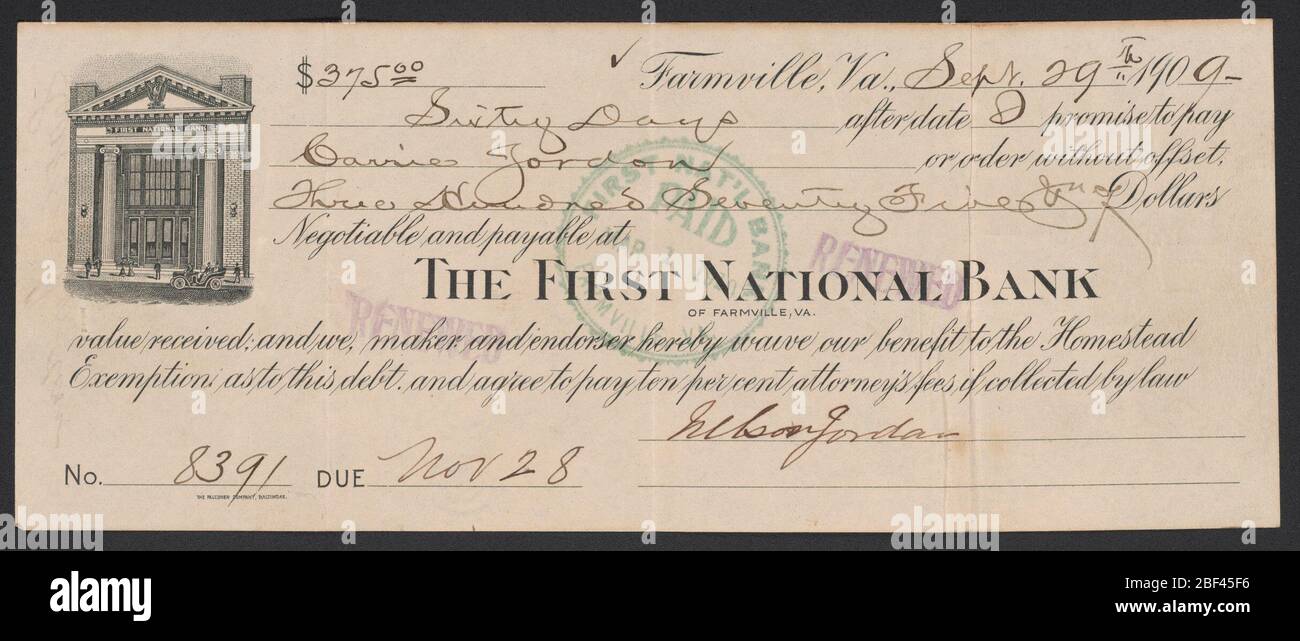 $375.00 Farmville, Va., Sept. 29th 1909-
Sixty Days after date I promise to pay
Carrie Jordon or order without offset,
Three Hundred Seventy Five Dollars
Negotiable and payable at
THE FIRST NATIONAL BANK
OF FARMVILLE, VA.
value received; and we, maker and endorser hereby waive our benefit to the Homestead
Exemption as to this debt, and agree to pay ten per cent attorney's fees if collected by law
Nelson Jordan
No. 8391 DUE Nov 28
THE FALCONER COMPANY, BALTIMORE.
FIRST NATIONAL BANK
FIRST NAT'L BANK
PAID
FARMVILLE, VA.
RENEWED
RENEWED
alamy
alamy
Image ID: 2BF45F6
www.alamy.com